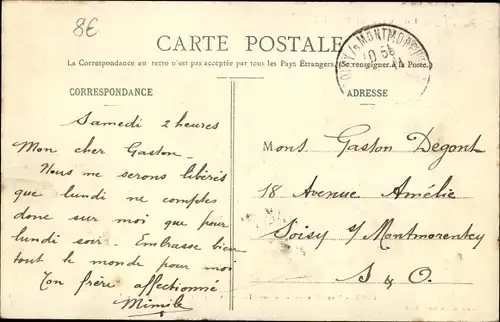 8€
CARTE POSTALE
La Correspondance au recto n'est pas acceptée par tous les Pays Étrangers. (Se renseigner à la Poste.)
CORRESPONDANCE
Samedi 2 heures
Mon cher Gaston
Nous ne serons libérés
que lundi ne comptes
donc sur moi que pour
lundi soir. Embrasse bien
tout le monde pour moi
Ton frère affectionné
Mimile
ADRESSE
Mons Gaston Degont
18 Avenue Amélie
Soisy s/ Montmorentcy
S & O.